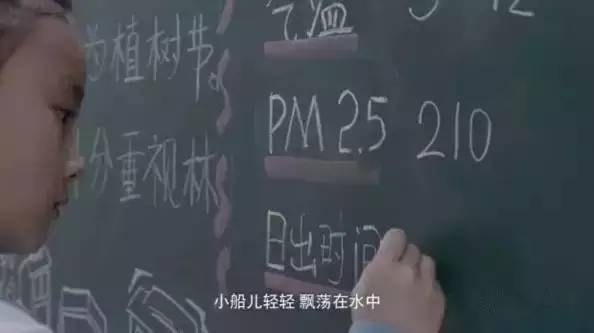 为植树节。
十分重视林
气温 3 12
PM2.5 210
日出时间
小船儿轻轻 飘荡在水中